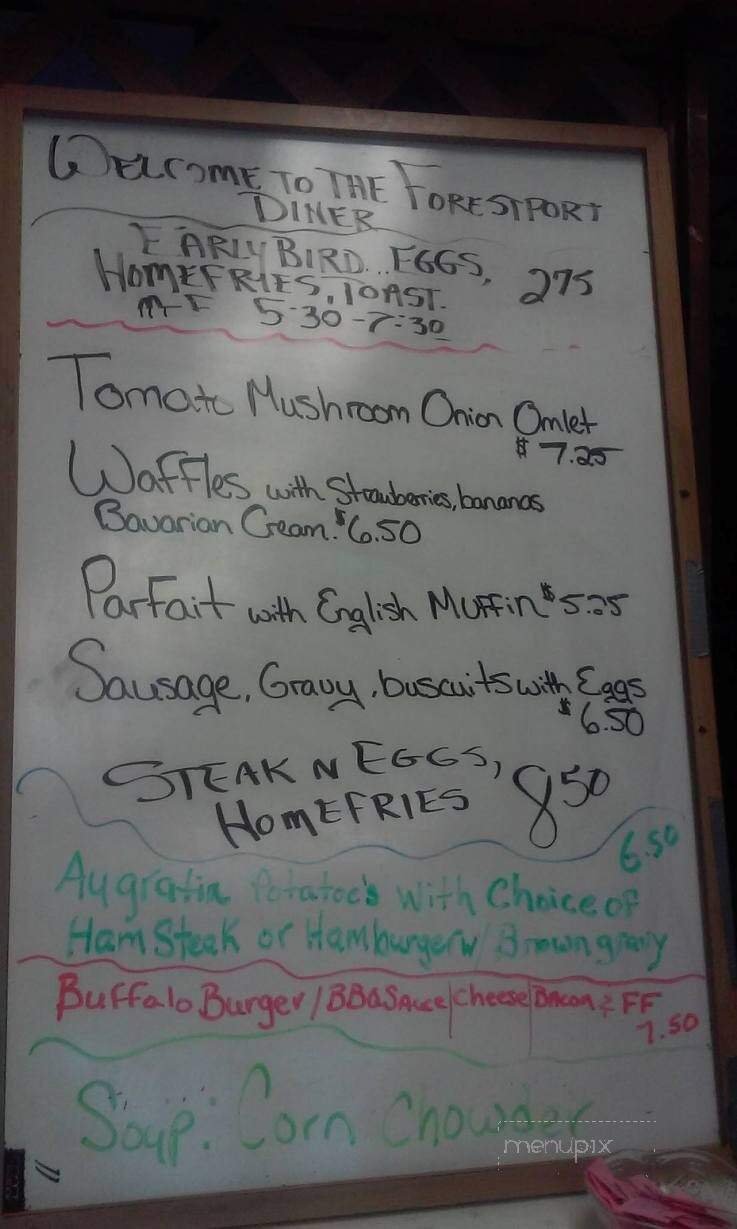 WELCOME TO THE FORESTPORT
DINER
EARLY BIRD... EGGS,
HOMEFRIES, TOAST. 275
M-F 5:30-7:30
Tomato Mushroom Onion Omlet
$ 7.25
Waffles with Strawberries, bananas
Bavarian Cream. $6.50
Parfait with English Muffin $5.25
Sausage, Gravy, buscuits with Eggs
$6.50
STEAK N EGGS,
HOMEFRIES 850
6.50
Augratin Potatoe's with Choice of
Ham Steak or Hamburger w/ Brown gravy
Buffalo Burger/BBQ Sauce|Cheese|Bacon & FF
7.50
Soup: Corn Chowder
menupix